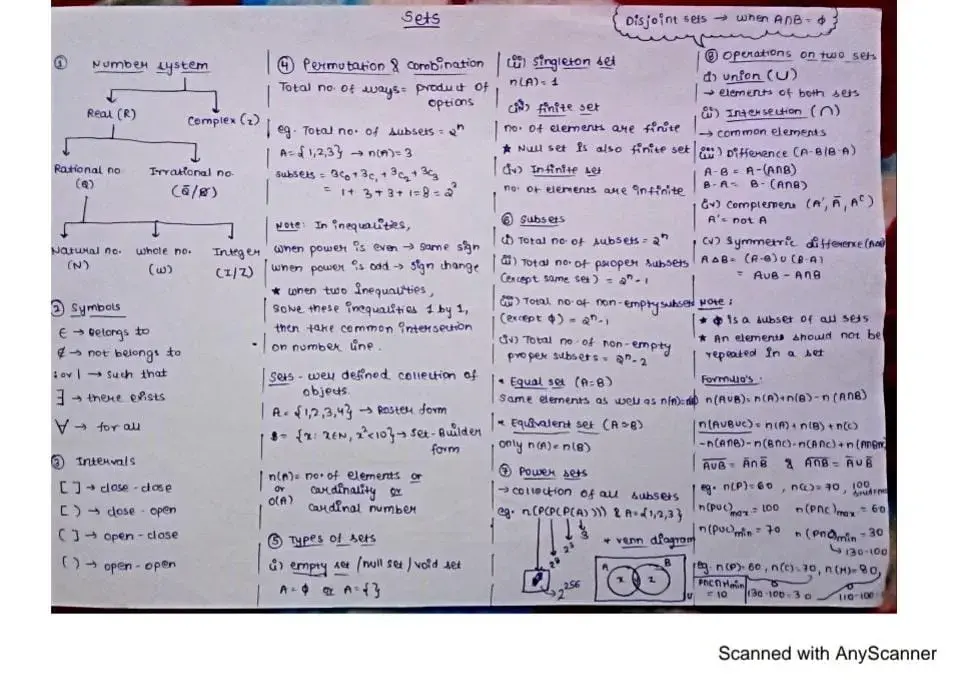 Sets
Disjoint sets → when A∩B = ϕ
① Number system
Real (R)
Complex (z)
Rational no.
(Q)
Irrational no.
Natural no.
(N)
whole no.
(W)
Integer
(I/Z)
② Symbols
∈ → Belongs to
∉ → not belongs to
: or | → such that
∃ → there exists
∀ → for all
③ Intervals
[ ] → close - close
[ ) → close - open
( ] → open - close
( ) → open - open
④ Permutation & Combination
Total no. of ways = product of
options
eg. Total no. of subsets = 2ⁿ
A = {1,2,3} → n(A) = 3
subsets = 3C₀ + 3C₁ + 3C₂ + 3C₃
= 1 + 3 + 3 + 1 = 8 = 2³
Note: In inequalities,
when power is even → same sign
when power is odd → sign change
★ when two Inequalities,
solve these inequalities 1 by 1,
then take common intersection
on number line.
Sets - well defined collection of
objects.
A = {1,2,3,4} → Roster form
B = {x : x∈N, x²<10} → Set-Builder
form
n(A) = no. of elements or
or cardinality or
O(A) cardinal number
⑤ Types of sets
(i) empty set / null set / void set
A = ϕ or A = { }
(ii) Singleton set
n(A) = 1
(iii) finite set
no. of elements are finite
★ Null set is also finite set
(iv) Infinite set
no. of elements are infinite
⑥ Subsets
(i) Total no. of subsets = 2ⁿ
(ii) Total no. of proper subsets
(except same set) = 2ⁿ-1
(iii) Total no. of non-empty subset
(except ϕ) = 2ⁿ-1
(iv) Total no. of non-empty
proper subsets = 2ⁿ-2
* Equal set (A=B)
same elements as well as
* Equivalent set
only n(A) = n(B)
⑦ Power sets
→ collection of all subsets
eg. n(P(P(P(A)))) & A = {1,2,3}
3
2³
2⁸
2²⁵⁶
* venn diagram
A
B
U
⑧ Operations on two sets
(i) union (∪)
→ elements of both sets
(ii) Intersection (∩)
→ common elements
(iii) Difference (A-B/B-A)
A-B = A-(A∩B)
B-A = B-(A∩B)
(iv) complement (A', Ā, Aᶜ)
A' = not A
(v) Symmetric difference
A∆B = (A-B) ∪ (B-A)
= A∪B - A∩B
Note :
★ ϕ is a subset of all sets
★ An elements should not be
repeated in a set
Formula's :
n(A∪B) = n(A) + n(B) - n(A∩B)
n(A∪B∪C) = n(A) + n(B) + n(C)
-n(A∩B) - n(B∩C) - n(A∩C) + n(A∩B∩C)
A̅∪̅B̅ = A̅∩B̅ & A̅∩̅B̅ = A̅∪B̅
eg. n(P) = 60, n(C) = 70, 100
students
n(P∪C)max = 100 n(P∩C)max = 60
n(P∪C)min = 70 n(P∩C)min = 30
↳ 130-100
eg. n(P) = 60, n(C) = 70, n(M) = 80,
= 10
130-100 = 30
110-100
Scanned with AnyScanner